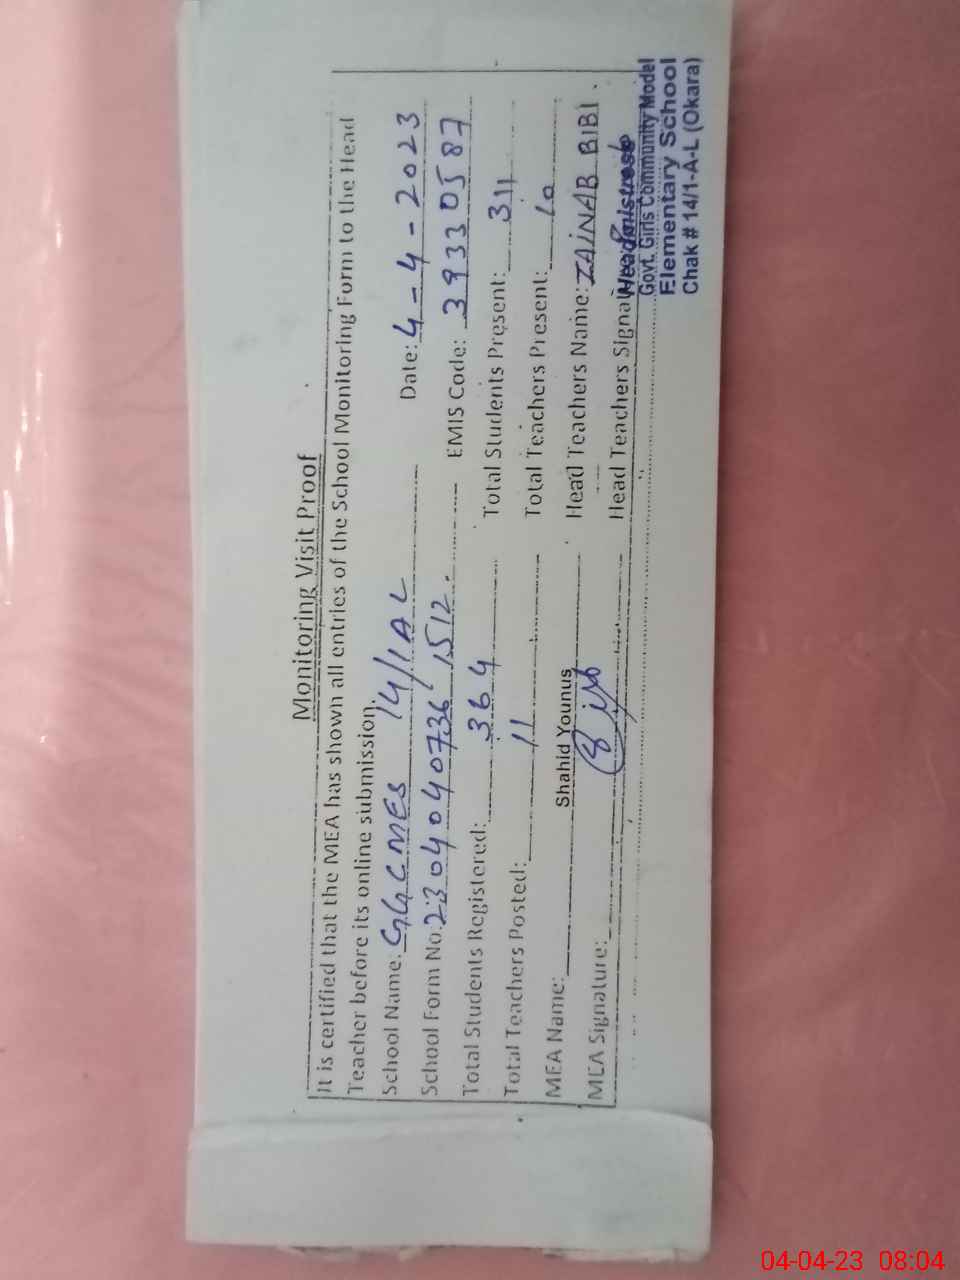 Monitoring Visit Proof
It is certified that the MEA has shown all entries of the School Monitoring Form to the Head
Teacher before its online submission.
School Name: GGCMES 14/1AL Date: 4-4-2023
School Form No: 2304040736 1512. EMIS Code: 39330587
Total Students Registered: 364 Total Students Present: 311
Total Teachers Posted: 11 Total Teachers Present: 10
MEA Name: Shahid Younus Head Teachers Name: ZAINAB BIBI.
MEA Signature: Head Teachers Signat
Headmistress
Govt. Girls Community Model
Elementary School
Chak # 14/1-A-L (Okara)
04-04-23 08:04